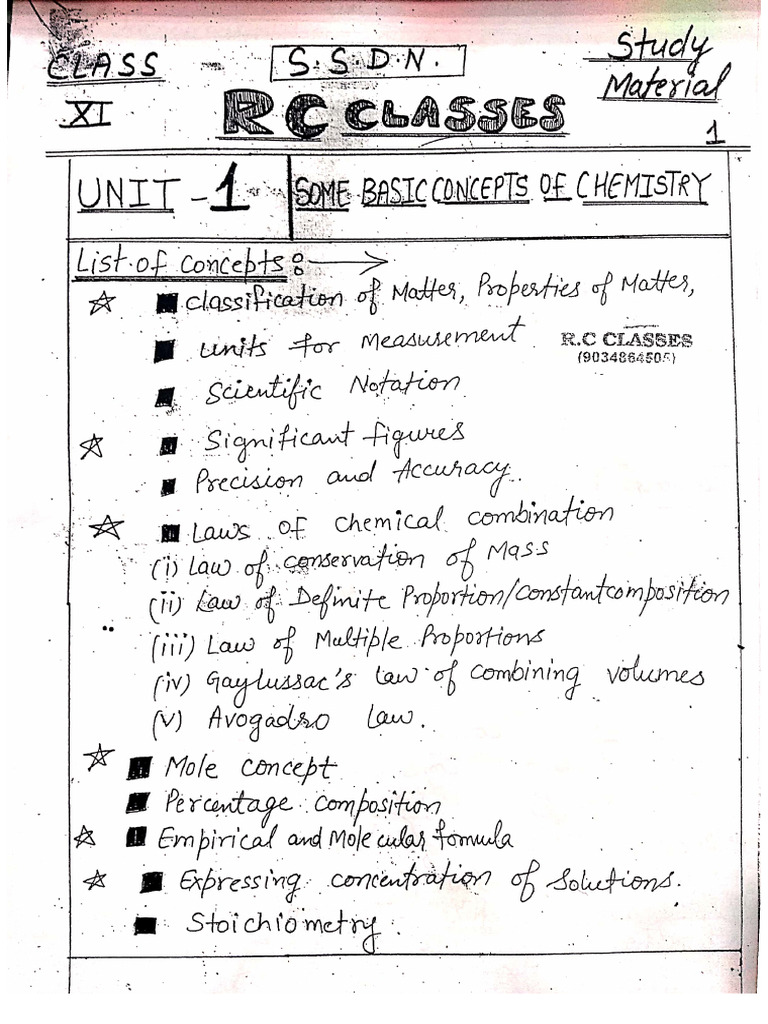 CLASS
XI
S.S.D.N.
RC CLASSES
Study
Material
1
UNIT - 1
SOME BASIC CONCEPTS OF CHEMISTRY
List of concepts :→
☆ ■ Classification of Matter, Properties of Matter,
■ Units for Measurement
R.C CLASSES
(9034864505)
■ Scientific Notation
☆ ■ Significant figures
■ Precision and Accuracy.
☆ ■ Laws of chemical combination
(i) Law of conservation of Mass
(ii) Law of Definite Proportion/Constant composition
(iii) Law of Multiple Proportions
(iv) Gaylussac's Law of combining volumes
(v) Avogadro Law.
☆ ■ Mole concept
■ Percentage composition
☆ ■ Empirical and Molecular formula
☆ ■ Expressing concentration of Solutions.
■ Stoichiometry.